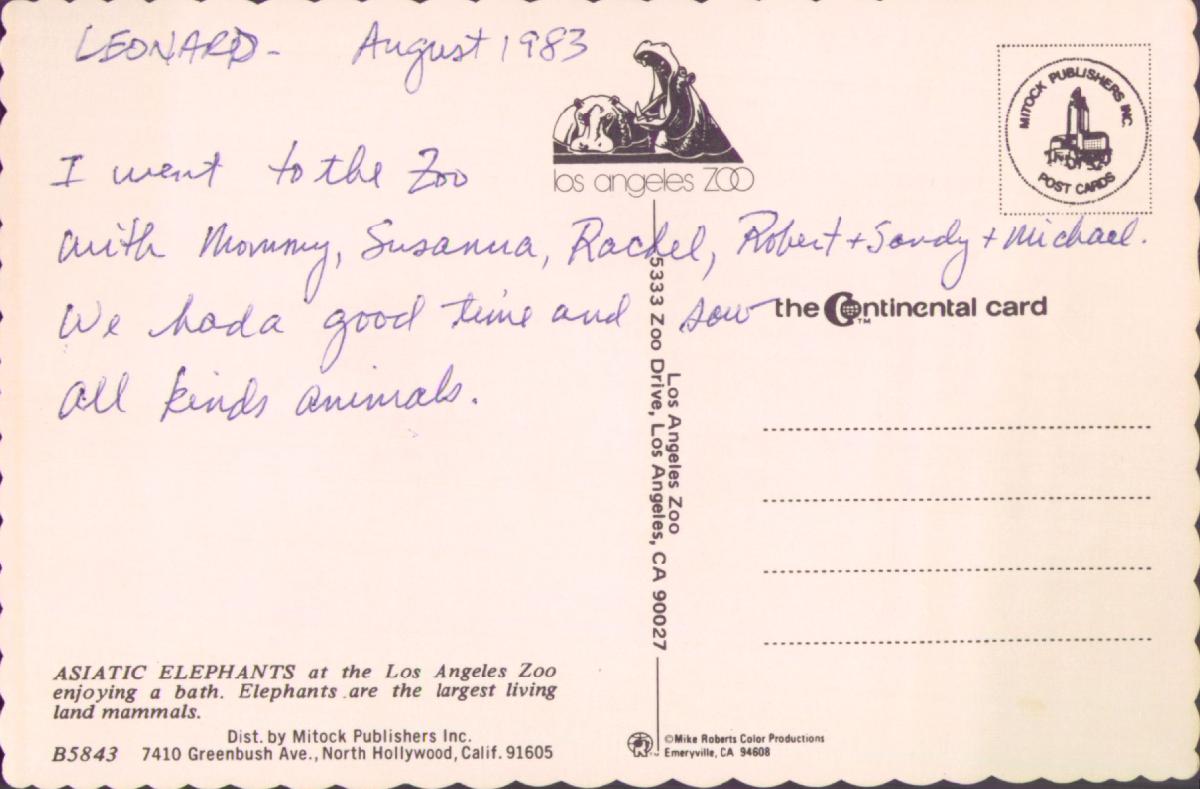 LEONARD- August 1983
I went to the Zoo
with Mommy, Susanna, Rachel, Robert + Sandy + Michael.
We had a good time and saw
all kinds animals.
los angeles ZOO
MITOCK PUBLISHERS INC.
POST CARDS
the Continental card
TM
Los Angeles Zoo
5333 Zoo Drive, Los Angeles, CA 90027
ASIATIC ELEPHANTS at the Los Angeles Zoo
enjoying a bath. Elephants are the largest living
land mammals.
Dist. by Mitock Publishers Inc.
B5843 7410 Greenbush Ave., North Hollywood, Calif. 91605
©Mike Roberts Color Productions
Emeryville, CA 94608